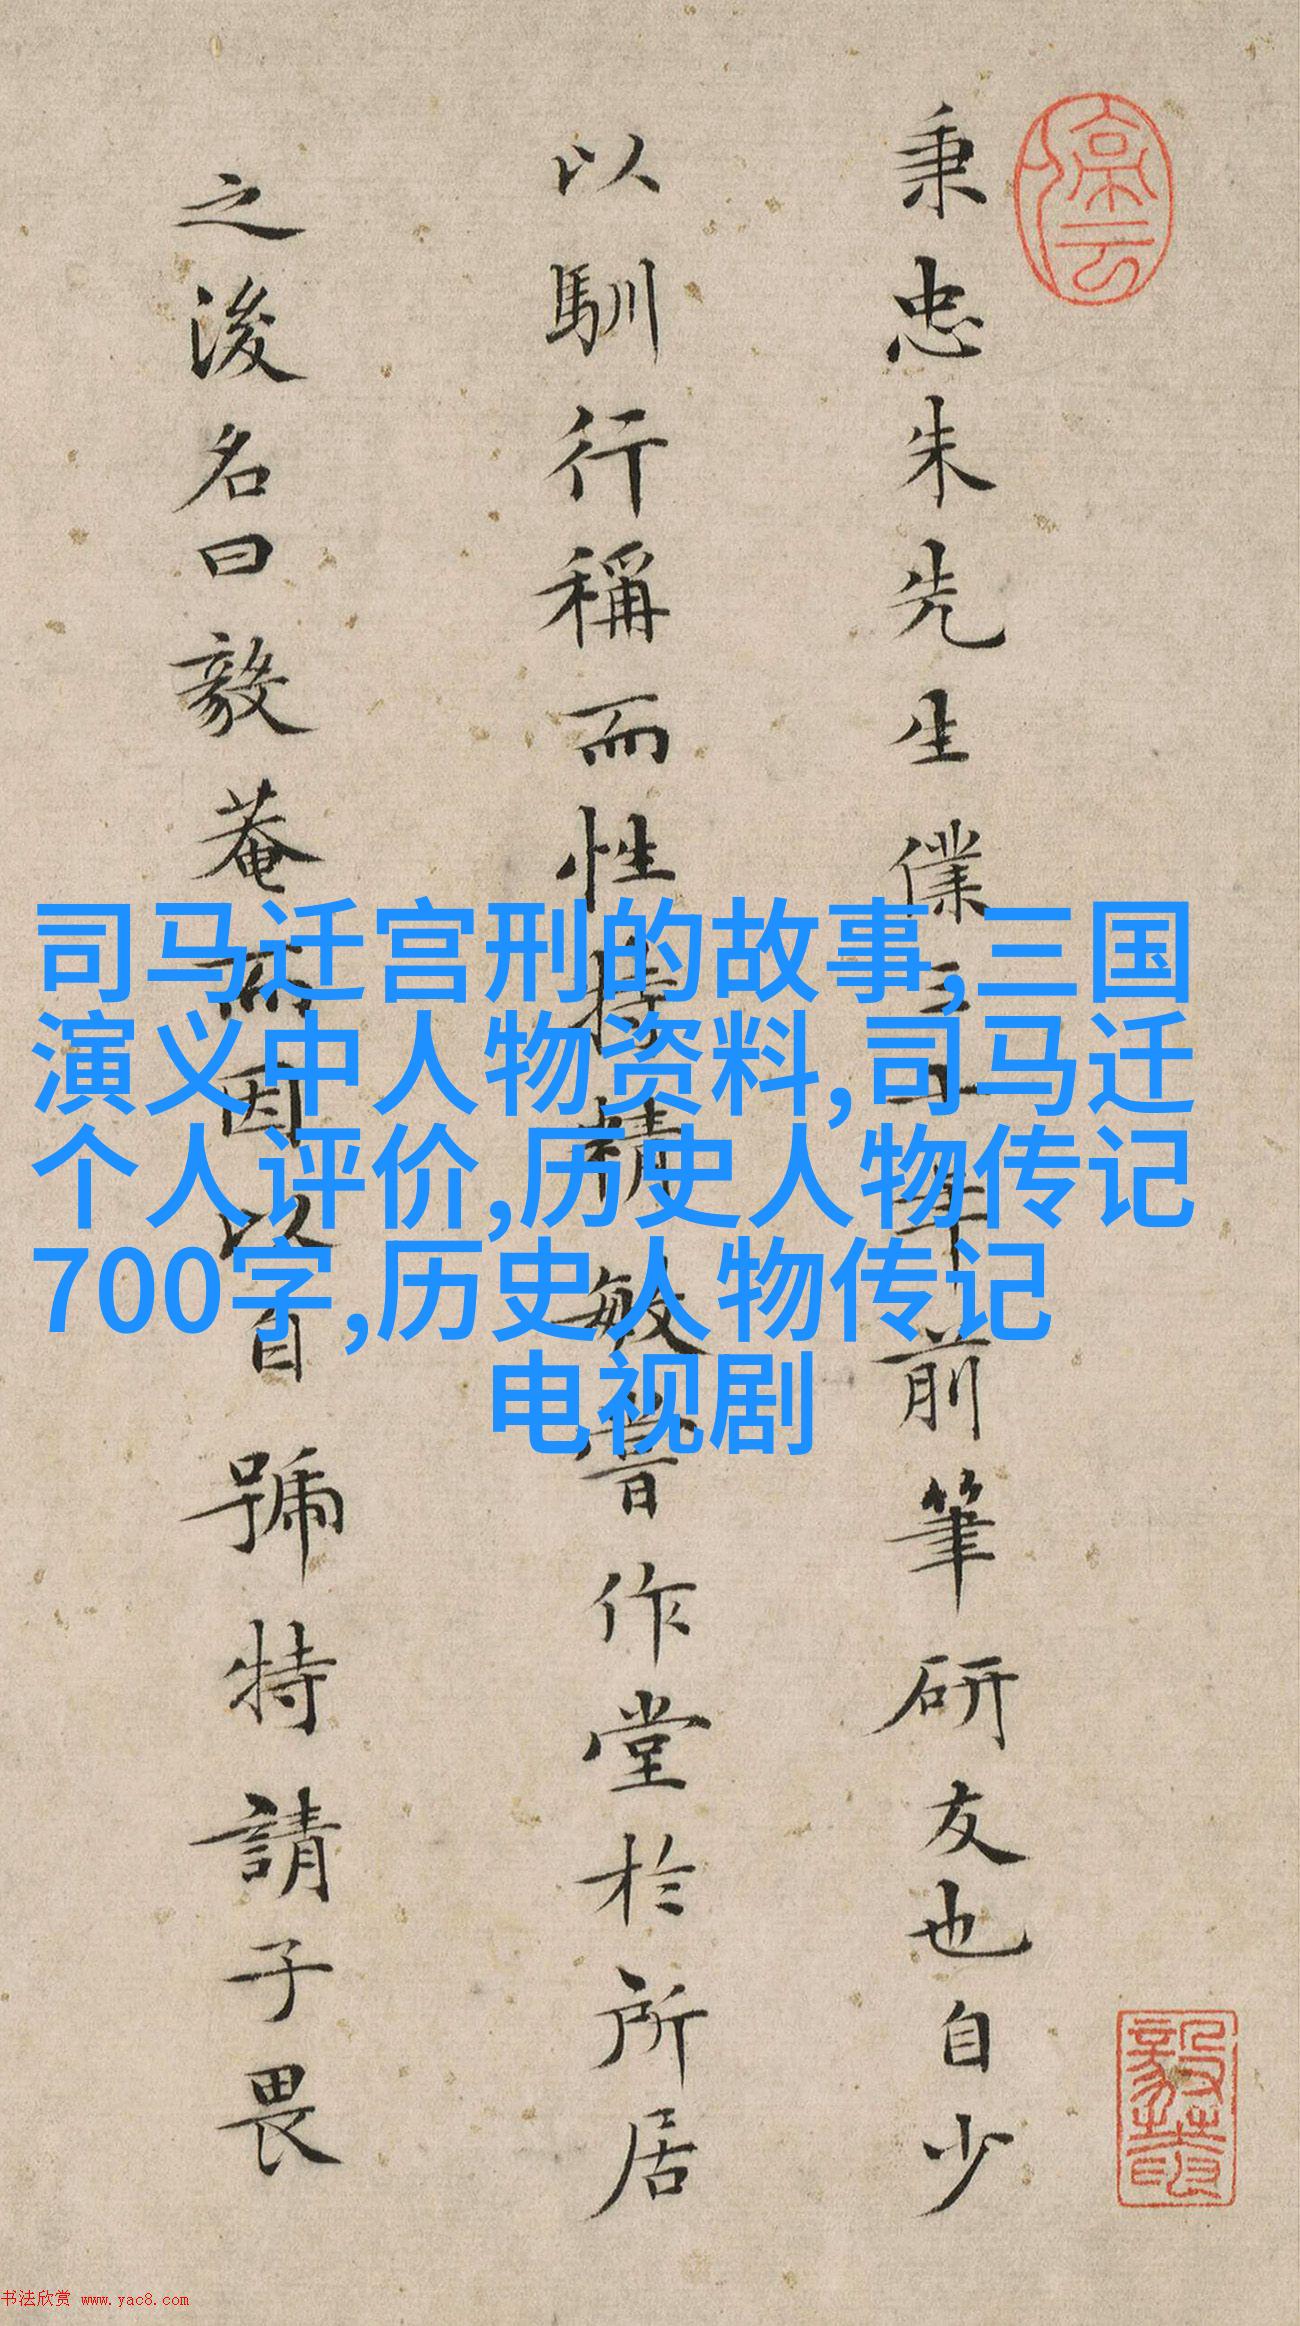 秉忠朱先生僕三十年前筆研友也自少
以馴行稱而性特精敏嘗作堂於所居
之後名曰毅菴而因以自號特請子畏
司马迁宫刑的故事,三国
演义中人物资料,司马迁
个人评价,历史人物传记
700字,历史人物传记
电视剧
书法欣赏 www.yac8.com